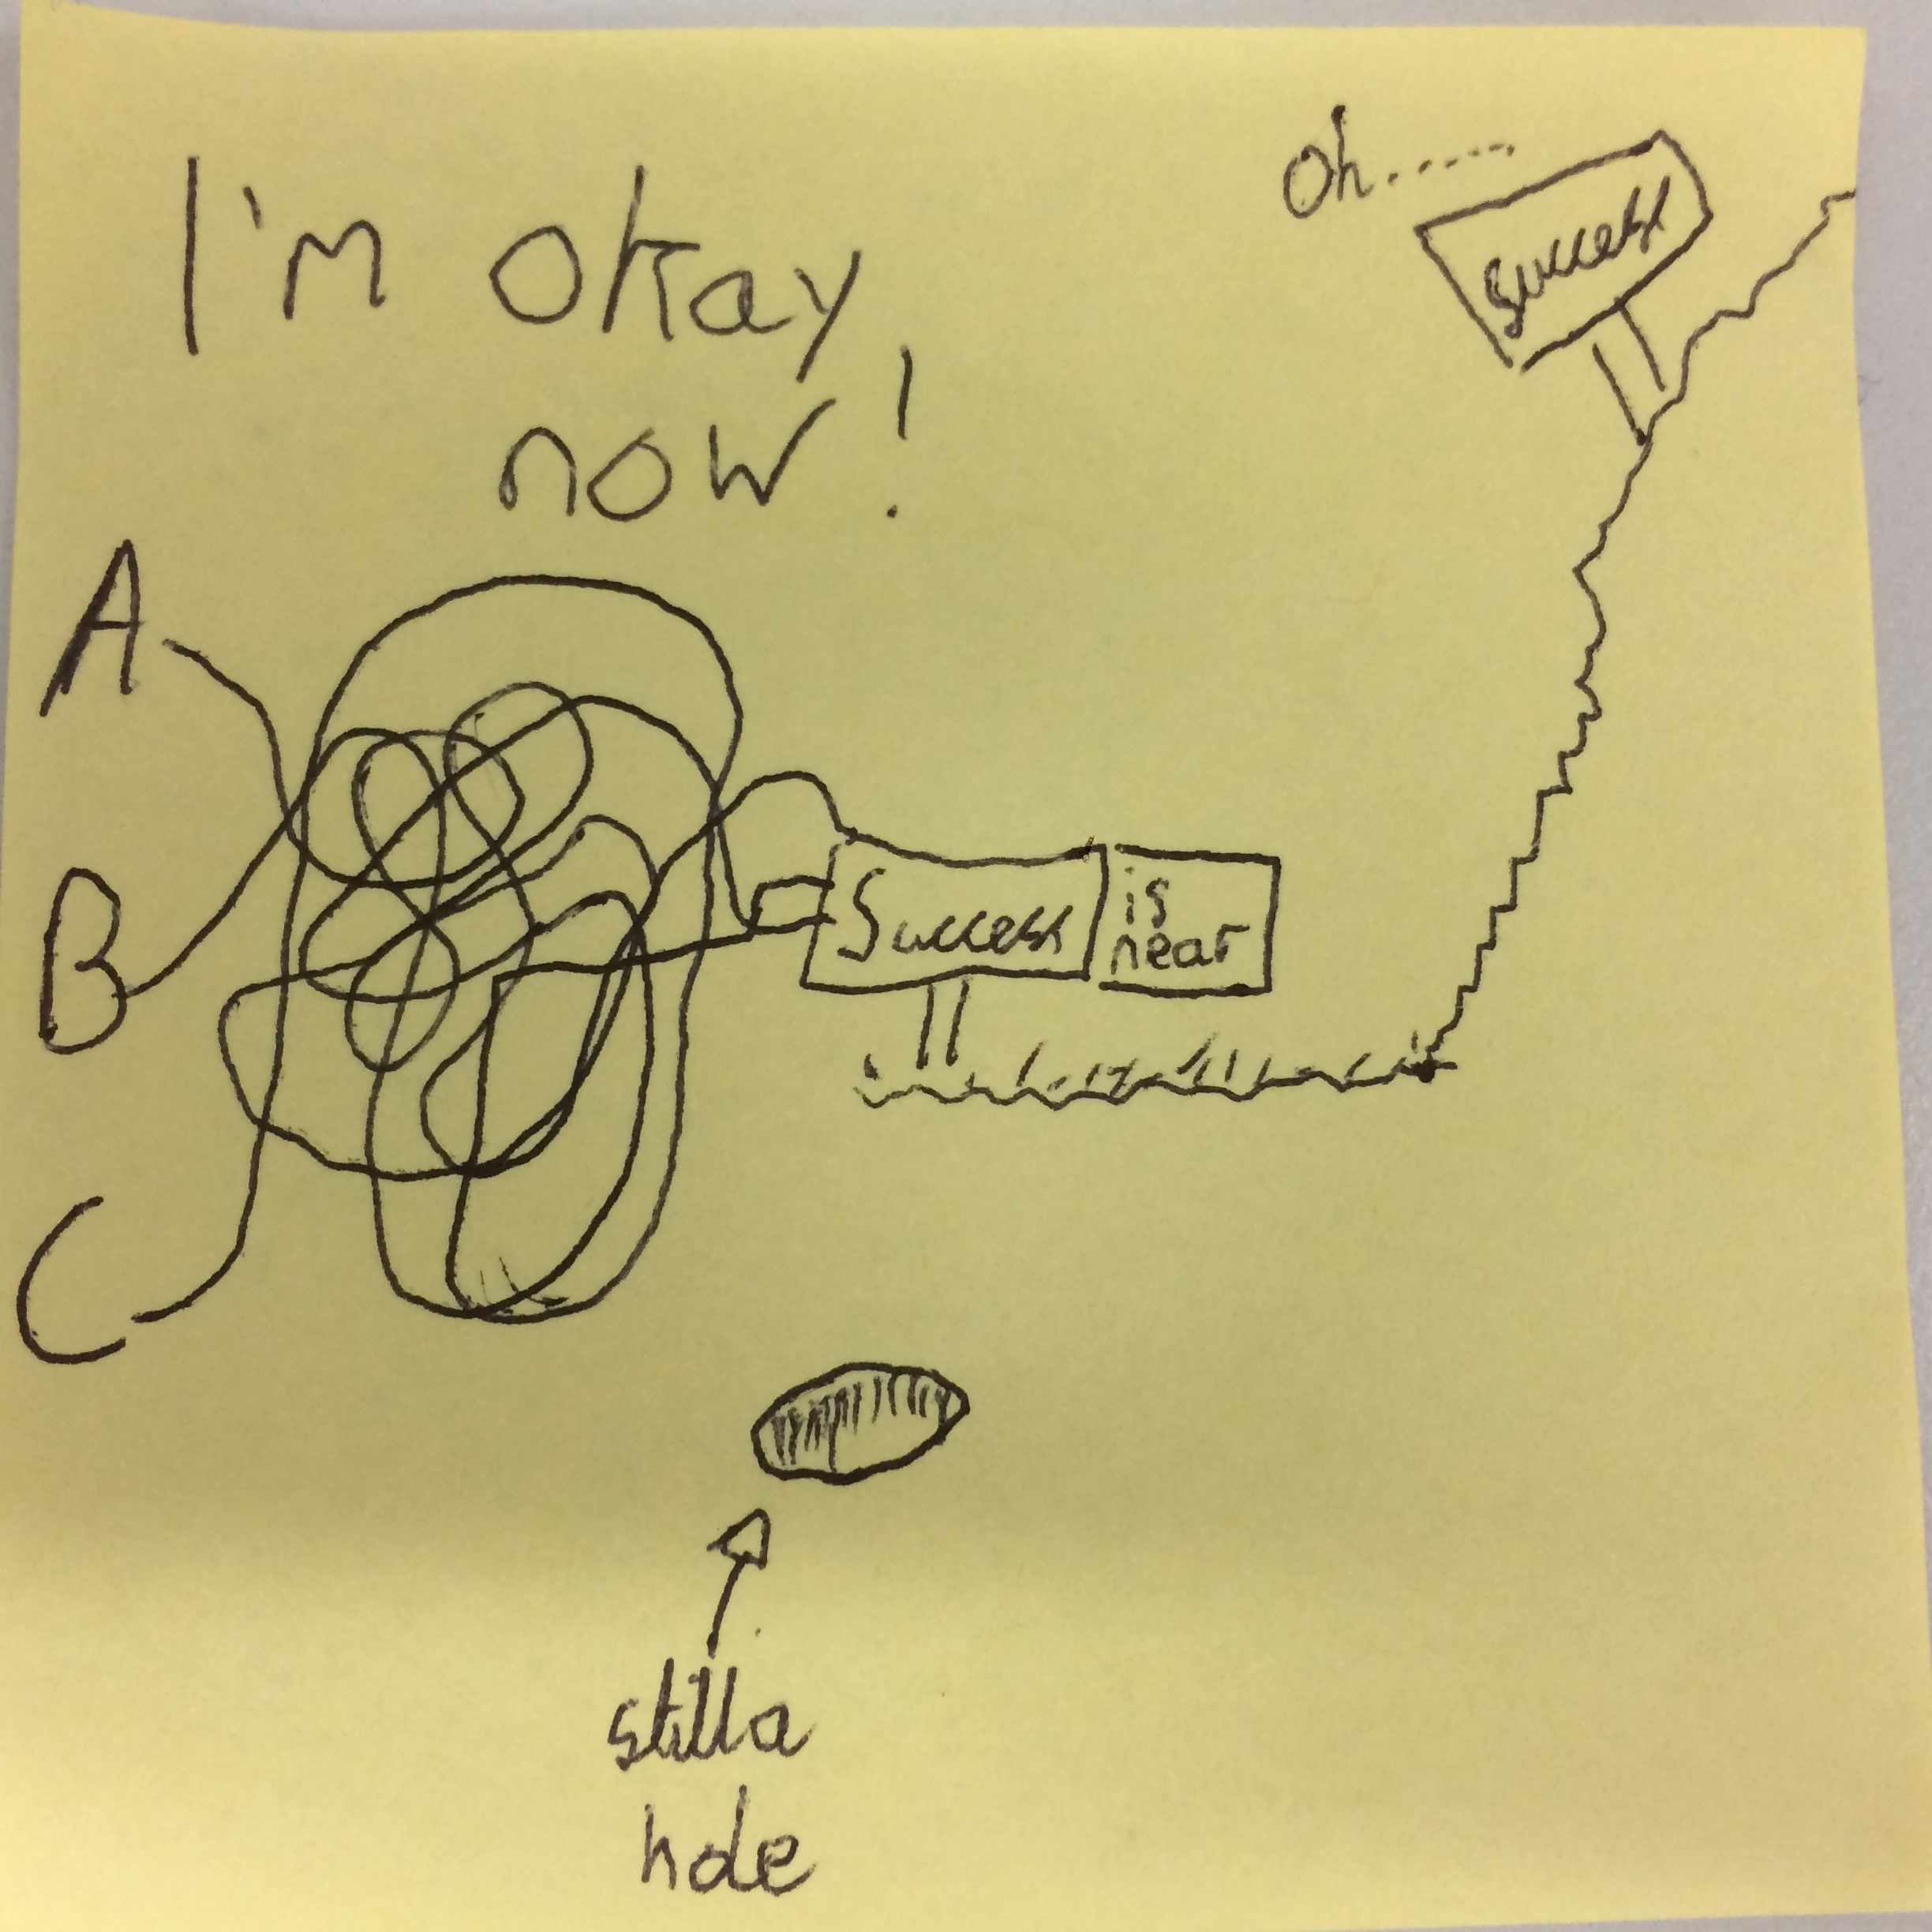 I'm okay
now!
Oh.........
success
A
B
C
Success
is
near
still a
hole